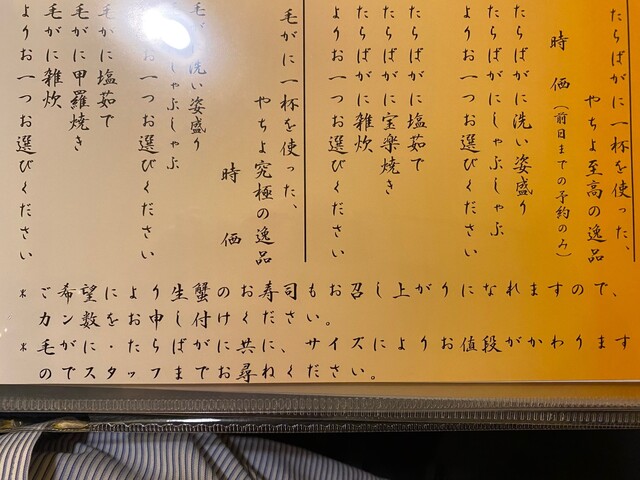 たらばがに一杯を使った、
やちよ至高の逸品
時 価（前日までの予約のみ）
たらばがに洗い姿盛り
たらばがにしゃぶしゃぶ
よりお一つお選びください
たらばがに塩茹で
たらばがに宝楽焼き
たらばがに雑炊
よりお一つお選びください
毛がに一杯を使った、
やちよ究極の逸品
時 価
毛がに洗い姿盛り
しゃぶしゃぶ
お一つお選びください
毛がに塩茹で
毛がに甲羅焼き
毛がに雑炊
よりお一つお選びください
＊ご希望により生蟹のお寿司もお召し上がりになれますので、
カン数をお申し付けください。
＊毛がに・たらばがに共に、サイズによりお値段がかわります
のでスタッフまでお尋ねください。